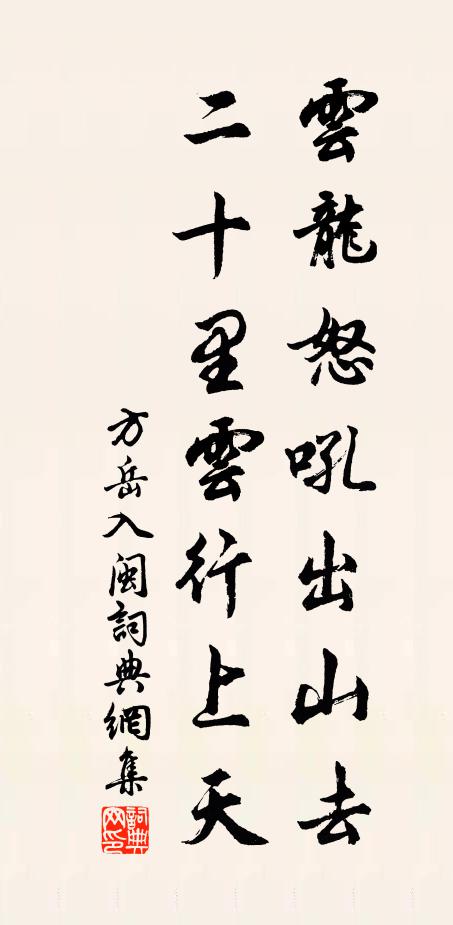 雲龍怒吼出山去
二十里雲行上天
方岳入閩詞典網集
詞典網印